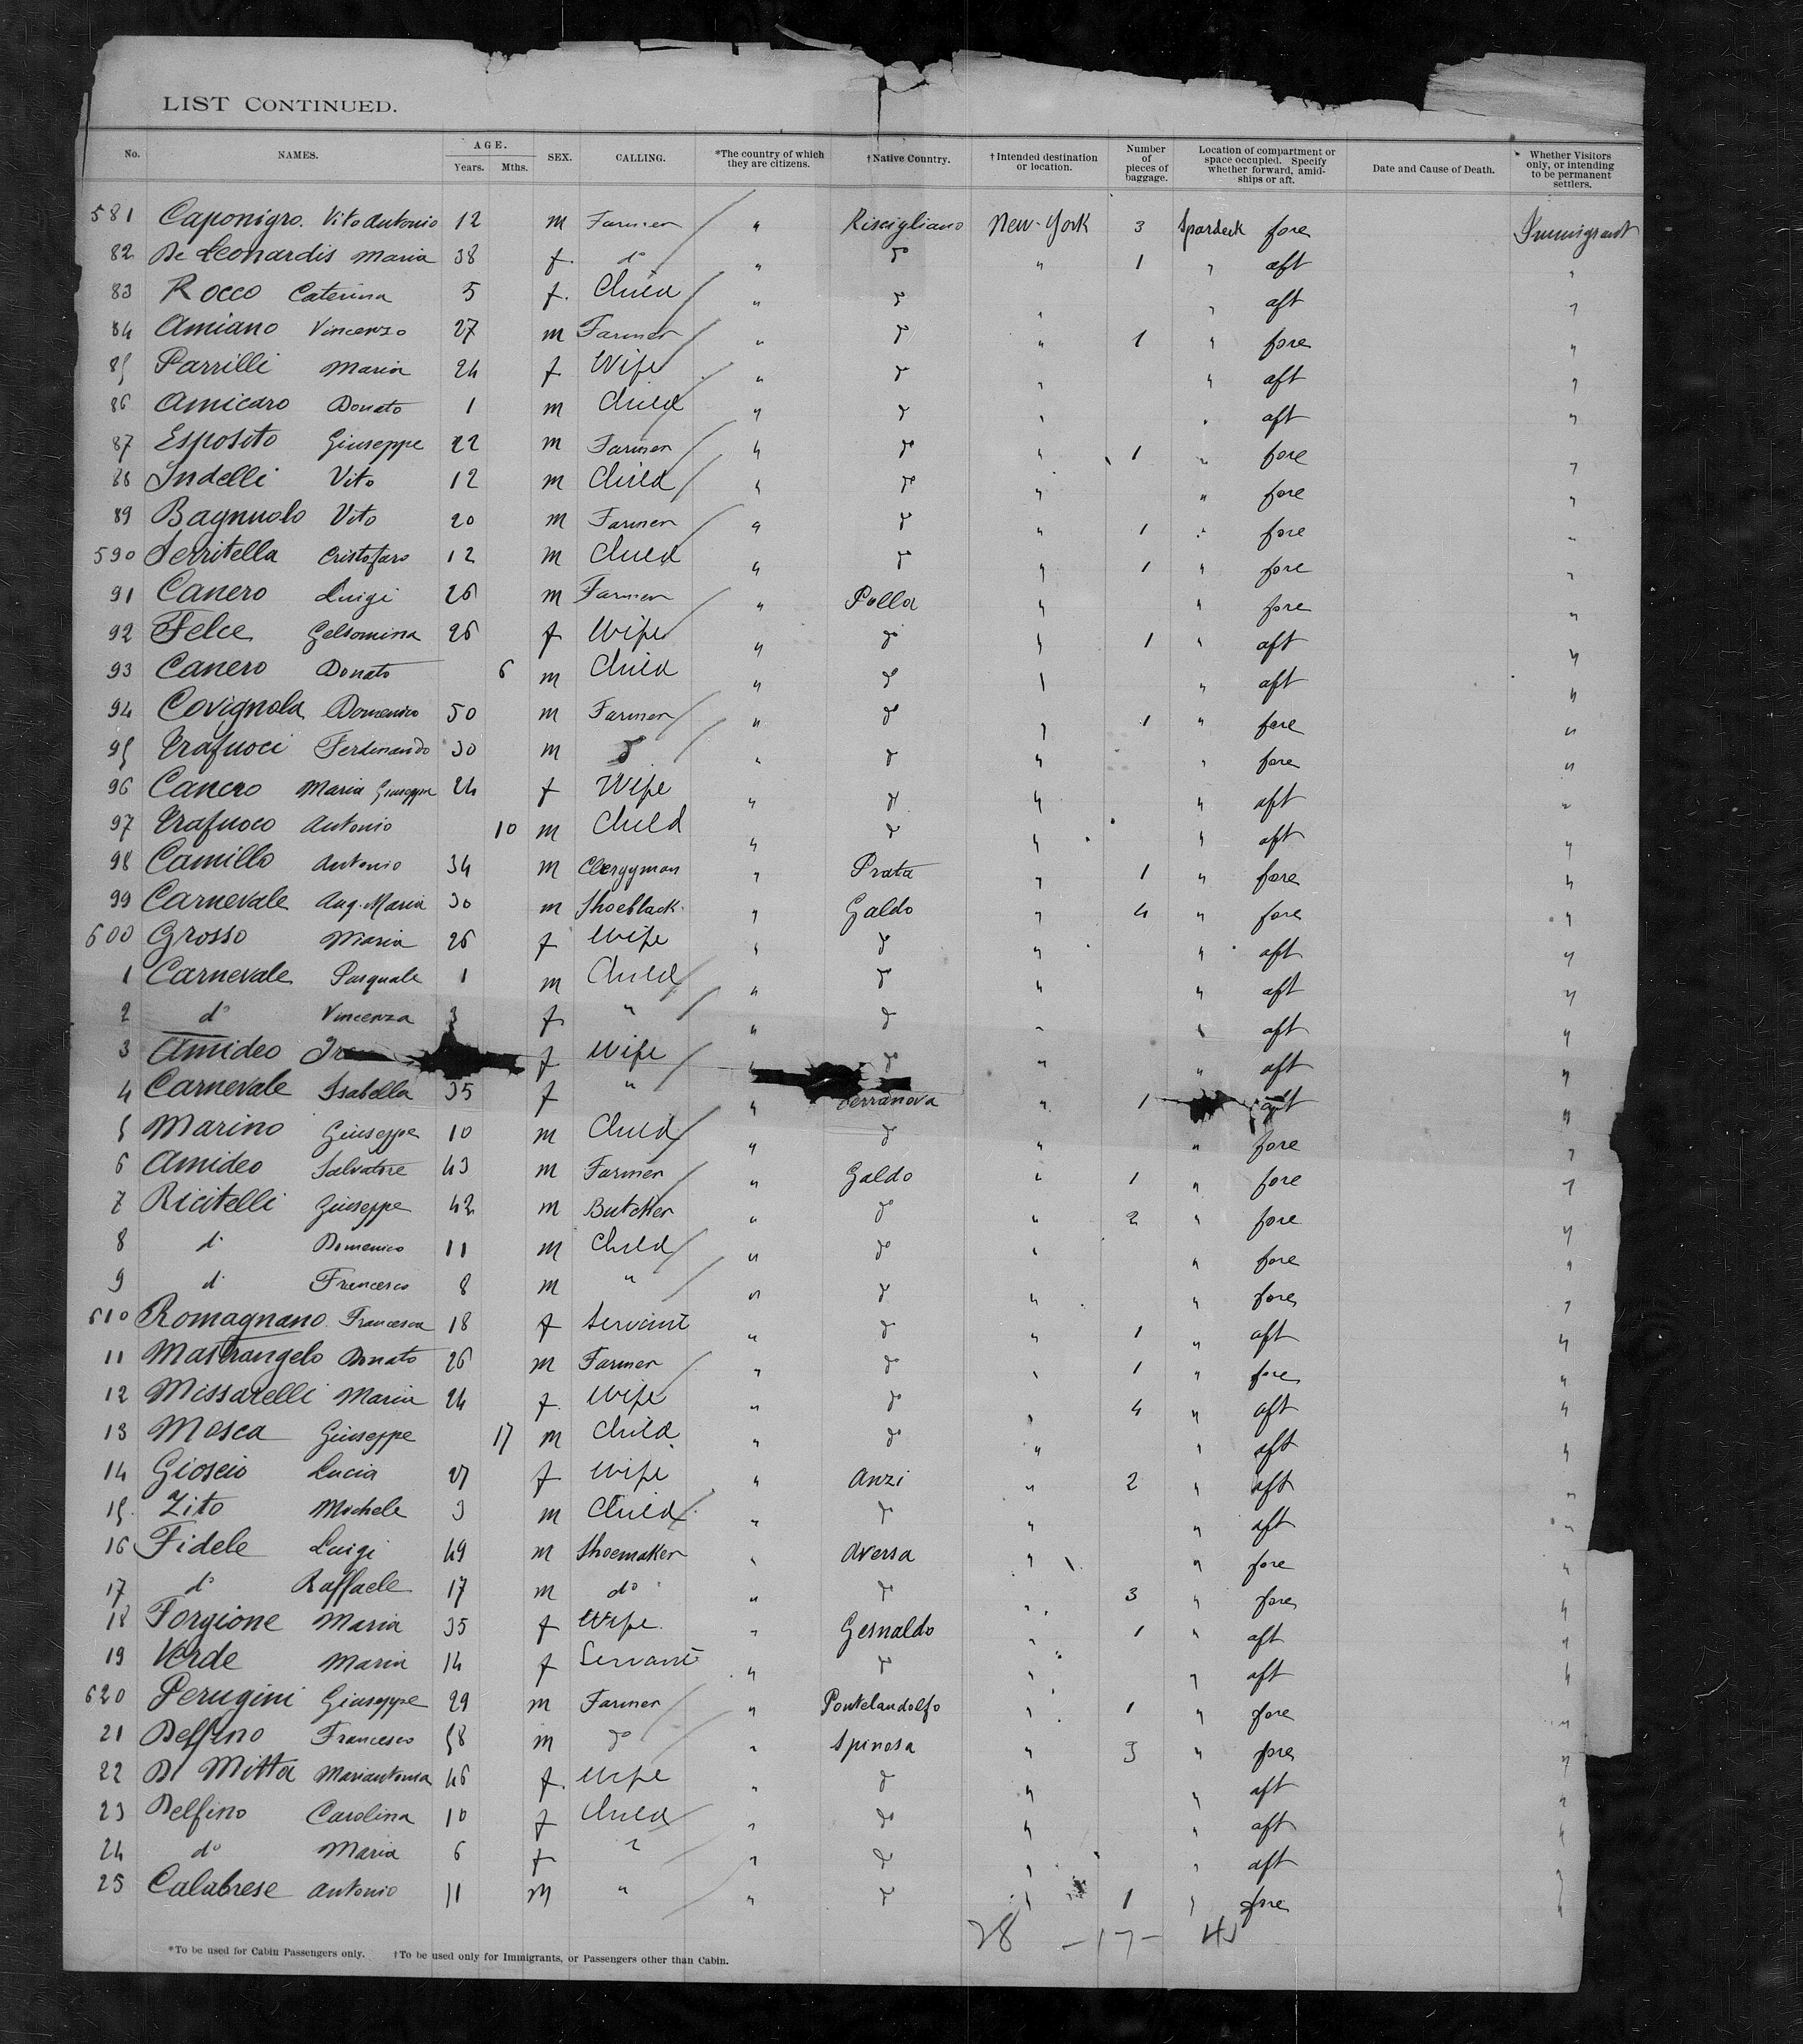 LIST CONTINUED.
No. NAMES. AGE. Years. Mths. SEX. CALLING. *The country of which they are citizens. †Native Country. †Intended destination or location. Number of pieces of baggage. Location of compartment or space occupied. Specify whether forward, amidships or aft. Date and Cause of Death. Whether Visitors only, or intending to be permanent settlers.
581 Caponigro. Vito Antonio 12 m Farmer " Riscigliano New-York 3 Spardeck fore Immigrant
82 De Leonardis Maria 38 f. do " do " 1 " aft "
83 Rocco Caterina 5 f. Child " do " " aft "
84 Amiano Vincenzo 27 m Farmer " do " 1 " fore "
85 Parrilli Maria 24 f Wife " do " " aft "
86 Amicaro Donato 1 m Child " do " " aft "
87 Esposito Giuseppe 22 m Farmer " do " 1 " fore "
88 Indelli Vito 12 m Child " do " " fore "
89 Bagnuolo Vito 20 m Farmer " do " 1 " fore "
590 Serritella Cristofaro 12 m Child " do " 1 " fore "
91 Canero Luigi 26 m Farmer " Polla " " fore "
92 Felce Gelsomina 26 f Wife " do " 1 " aft "
93 Canero Donato 6 m Child " do " " aft "
94 Covignola Domenico 50 m Farmer " do " 1 " fore "
95 Trafuoci Ferdinando 30 m do " do " " fore "
96 Canero Maria Giuseppa 24 f Wife " do " " aft "
97 Trafuoco Antonio 10 m Child " do " " aft "
98 Camillo Antonio 34 m Clergyman " Prata " 1 " fore "
99 Carnevale Ang. Maria 30 m Shoeblack " Galdo " 4 " fore "
600 Grosso Maria 26 f Wife " do " " aft "
1 Carnevale Pasquale 1 m Child " do " " aft "
2 do Vincenza 3 f " " do " " aft "
3 Amideo f Wife " do " " aft "
4 Carnevale Isabella 35 f " " Terranova " 1 aft "
5 Marino Giuseppe 10 m Child " do " " fore "
6 Amideo Salvatore 43 m Farmer " Galdo " 1 " fore "
7 Ricitelli Giuseppe 42 m Butcher " do " 2 " fore "
8 do Domenico 11 m Child " do " " fore "
9 do Francesco 8 m " " do " " fore "
610 Romagnano Francesca 18 f Servant " do " 1 " aft "
11 Mastrangelo Donato 26 m Farmer " do " 1 " fore "
12 Missarelli Maria 24 f Wife " do " 4 " aft "
13 Mosca Giuseppe 17 m Child " do " " aft "
14 Gioscio Lucia 27 f Wife " Anzi " 2 " aft "
15 Zito Michele 3 m Child " do " " aft "
16 Fidele Luigi 49 m Shoemaker " Aversa " " fore "
17 do Raffaele 17 m do " do " 3 " fore "
18 Forgione Maria 35 f Wife " Gesnaldo " 1 " aft "
19 Verde Maria 14 f Servant " do " " aft "
620 Perugini Giuseppe 29 m Farmer " Pontelandolfo " 1 " fore "
21 Delfino Francesco 58 m do " Spinosa " 3 " fore "
22 Di Mitta Mariantonia 46 f. Wife " do " " aft "
23 Delfino Carolina 10 f Child " do " " aft "
24 do Maria 6 f " " do " " aft "
25 Calabrese Antonio 11 m " " do " 1 " fore "
28 - 17 - 45
*To be used for Cabin Passengers only. †To be used only for Immigrants, or Passengers other than Cabin.